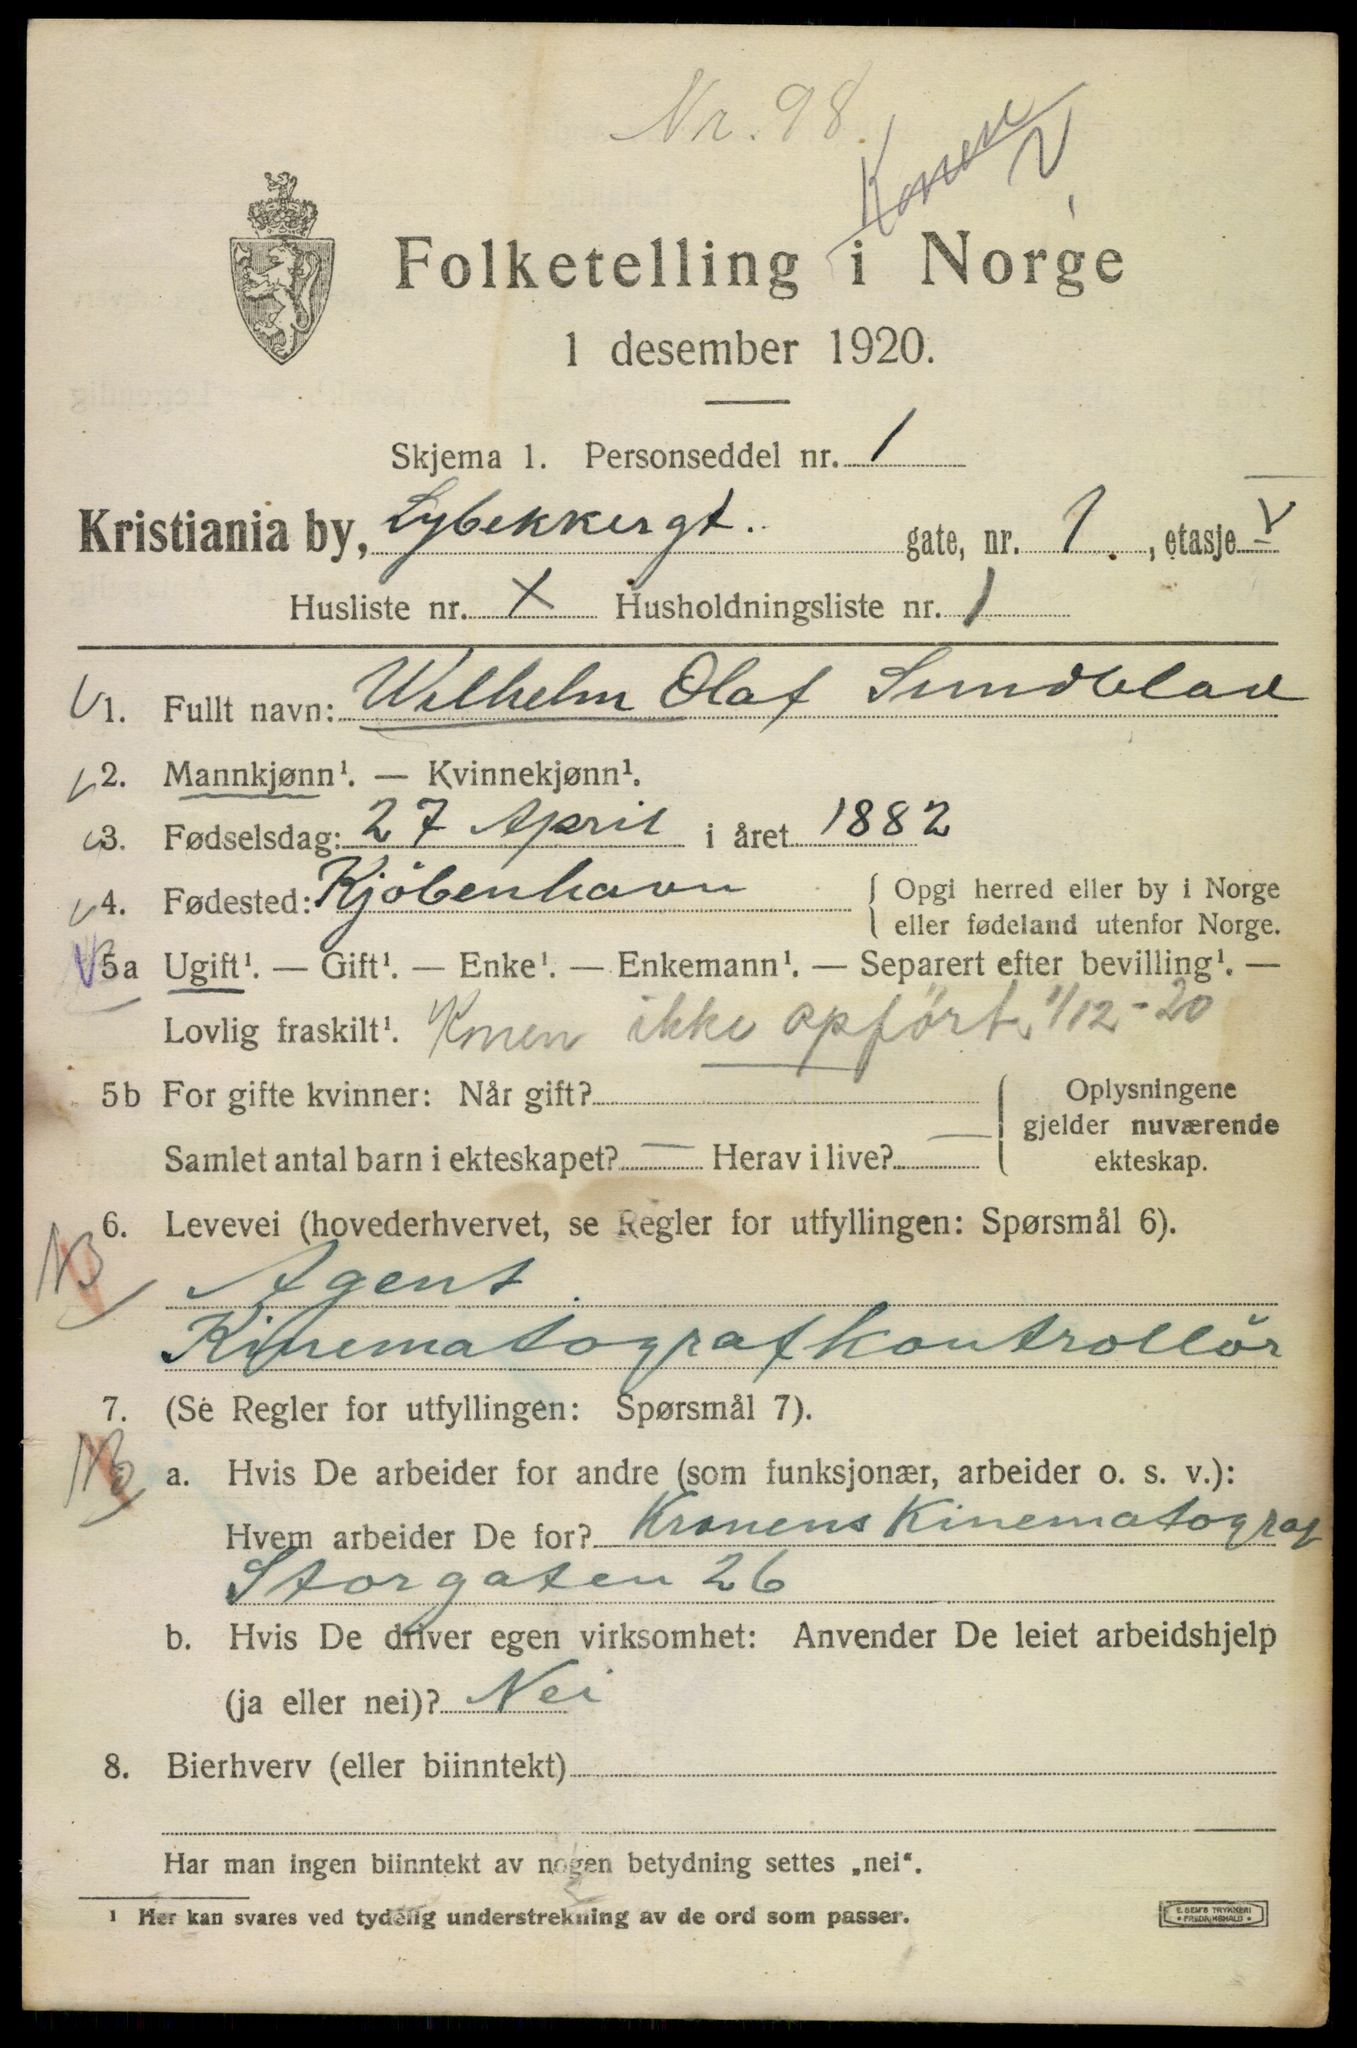 Nr. 98.
Konen
Folketelling i Norge
1 desember 1920.
Skjema 1. Personseddel nr. 1
Kristiania by, Lybekkergt. gate, nr. 1, etasje V
Husliste nr. X Husholdningsliste nr. 1
1. Fullt navn: Wilhelm Olaf Sundblad
2. Mannkjønn¹. — Kvinnekjønn¹.
3. Fødselsdag: 27 April i året 1882
4. Fødested: Kjöbenhavn { Opgi herred eller by i Norge
eller fødeland utenfor Norge.
5a Ugift¹. — Gift¹. — Enke¹. — Enkemann¹. — Separert efter bevilling¹. —
Lovlig fraskilt¹. Konen ikke opført 1/12-20
5b For gifte kvinner: Når gift? { Oplysningene
gjelder nuværende
Samlet antal barn i ekteskapet? — Herav i live? — ekteskap.
6. Levevei (hovederhvervet, se Regler for utfyllingen: Spørsmål 6).
NB
Agent
Kinematografkontrollör
7. (Se Regler for utfyllingen: Spørsmål 7).
NB a. Hvis De arbeider for andre (som funksjonær, arbeider o. s. v.):
Hvem arbeider De for? Kronens Kinematograf
Storgaten 26
b. Hvis De driver egen virksomhet: Anvender De leiet arbeidshjelp
(ja eller nei)? Nei
8. Bierhverv (eller biinntekt)
Har man ingen biinntekt av nogen betydning settes „nei“.
¹ Her kan svares ved tydelig understrekning av de ord som passer.
E. SEM'S TRYKKERI
FREDRIKSHALD